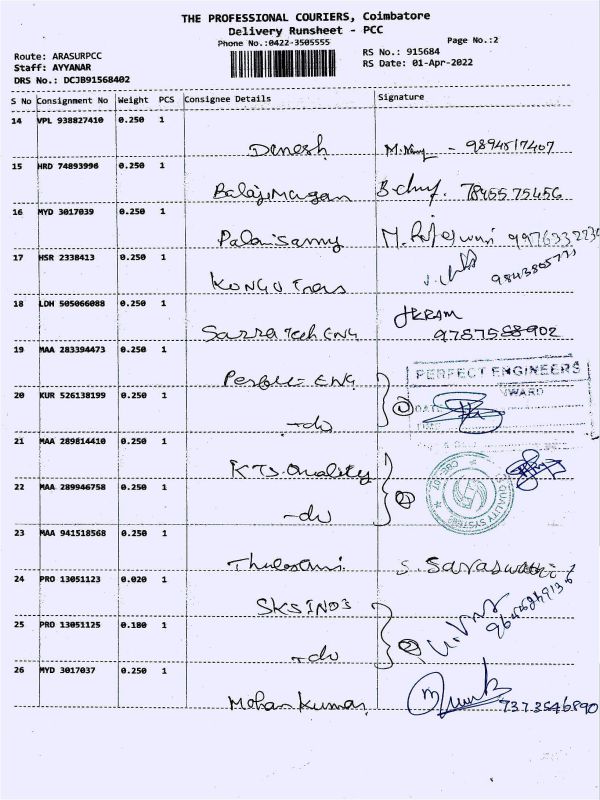 THE PROFESSIONAL COURIERS, Coimbatore
Delivery Runsheet - PCC
Phone No.:0422-3505555
Page No.:2
Route: ARASURPCC
RS No.: 915684
Staff: AYYANAR
RS Date: 01-Apr-2022
DRS No.: DCJB91568402
S No Consignment No Weight PCS Consignee Details Signature
14 VPL 938827410 0.250 1
Dinesh - 9894517407
15 HRD 74893996 0.250 1
Balaji Murgan 7845575456
16 MYD 3017039 0.250 1
Palanisamy
17 HSR 2338413 0.250 1
KONGU Trans
18 LDH 505066088 0.250 1
IKRAM
Sarra Tech ENG 9787588902
19 MAA 283394473 0.250 1
PERFECT ENGINEERS
Perfect ENG
20 KUR 526138199 0.250 1
INWARD
DATE
-do
21 MAA 289814410 0.250 1
KTS Quality
22 MAA 289946758 0.250 1
QUALITY SYSTEMS
-do
23 MAA 941518568 0.250 1
Thulasi S. Saraswathi
24 PRO 13051123 0.020 1
SKS INDS
25 PRO 13051125 0.180 1
-do
26 MYD 3017037 0.250 1
Mohan Kumar 7373546890